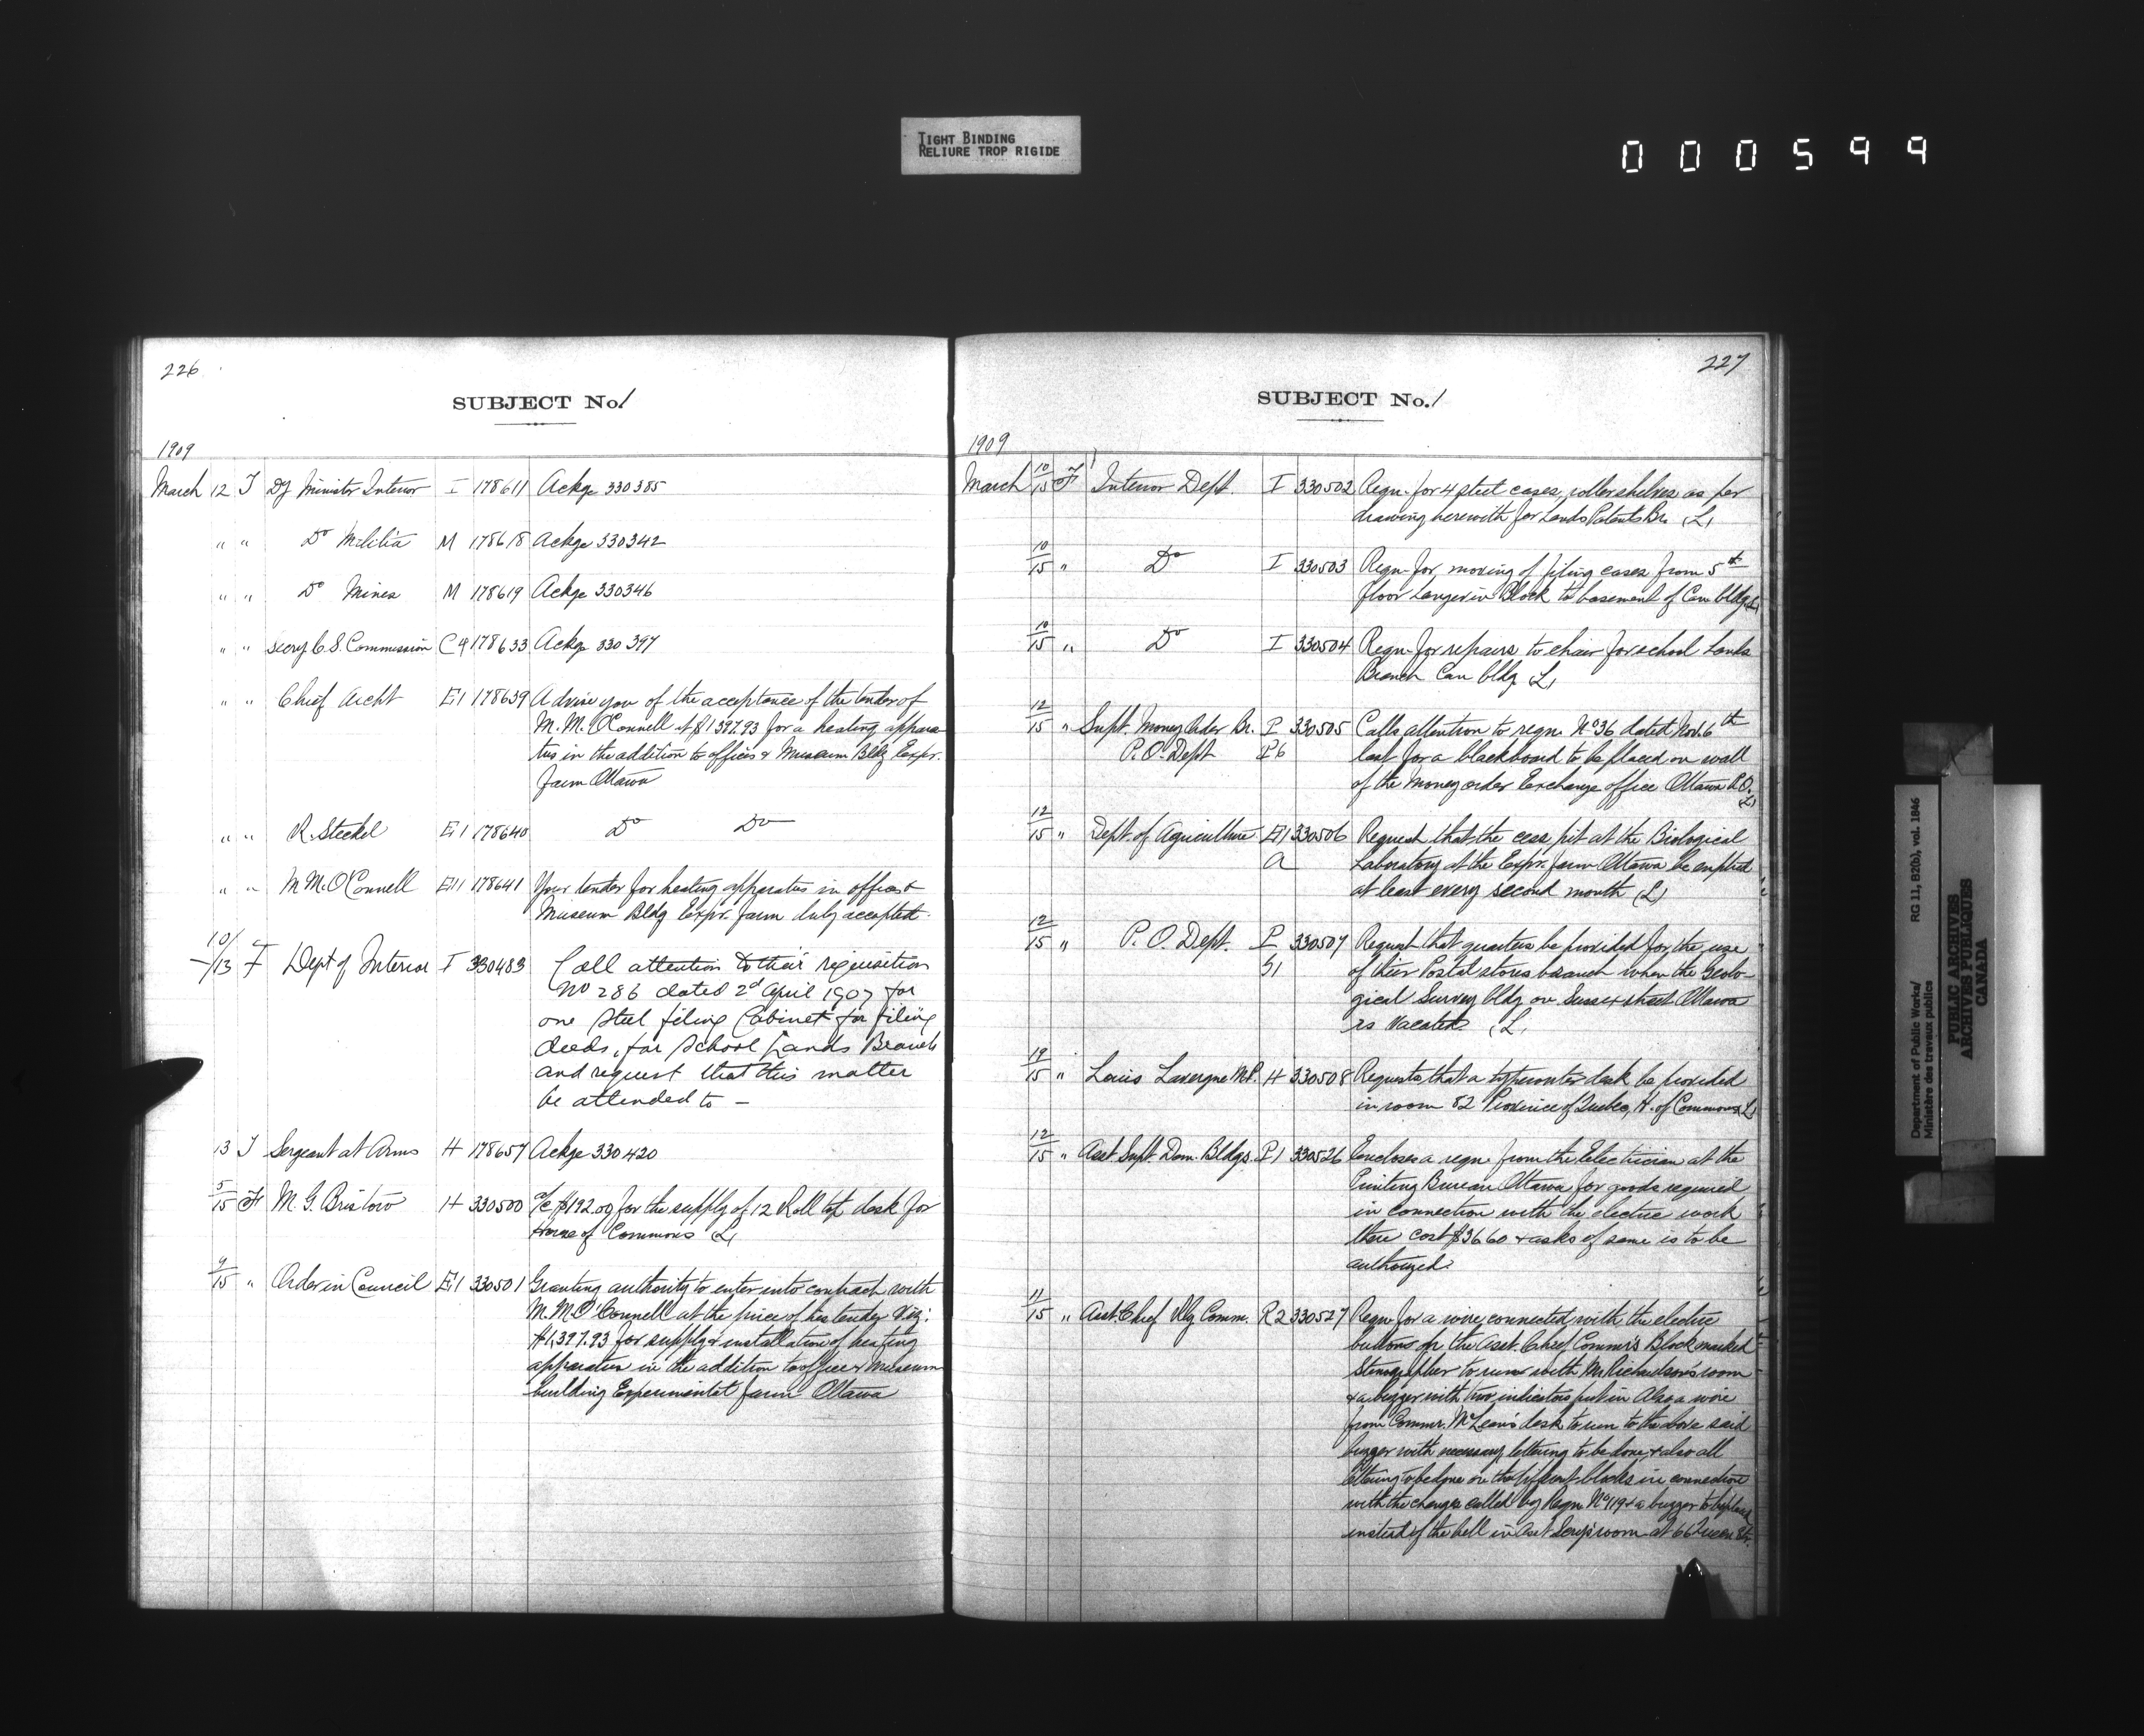 TIGHT BINDING
RELIURE TROP RIGIDE
000599
226
SUBJECT No. 1
1909
March 12 T Dy Minister Interior I 178611 Ackge 330385
" " Do Militia M 178618 Ackge 330342
" " Do Mines M 178619 Ackge 330346
" " Secry C. S. Commission C9 178633 Ackge 330397
" " Chief Archt E11 178639 Advise you of the acceptance of the tender of
M. M. O'Connell at $1397.93 for a heating appara
tus in the addition to offices & Museum Bldg Exper.
farm Ottawa
" " R. Steckel E11 178640 Do Do
" " M M. O'Connell E11 178641 Your tender for heating apparatus in office &
Museum Bldg Expr. farm duly accepted.
10/13 F Dept of Interior I 330483 Call attention to their requisition
No 286 dated 2d April 1907 for
one steel filing Cabinet for filing
deeds, for School Lands Branch
and request that this matter
be attended to —
13 T Sergeant at Arms H 178657 Ackge 330420
5/15 F M. G. Bristow H 330500 a/c $192.00 for the supply of 12 Roll top desk for
House of Commons (L)
9/15 " Order in Council E11 330501 Granting authority to enter into contract with
M. M. O'Connell at the price of his tender Viz:
$1,397.93 for supply & installation of heating
apparatus in the addition to office & Museum
building Experimental farm Ottawa
227
SUBJECT No. 1
1909
March 10/15 F Interior Dept. I 330502 Reqn. for 4 steel cases, roller shelves as per
drawing herewith for Lands Patents Br. (L)
10/15 " Do I 330503 Reqn. for moving of filing cases from 5th
floor Langevin Block to basement of Can bldg (L)
10/15 " Do I 330504 Reqn. for repairs to chair for school Lands
Branch Can bldg (L)
12/15 " Supt. Money Order Br. P 330505 Calls attention to reqn. No 36 dated Nov. 6th
P.O. Dept P6 last for a blackboard to be placed on wall
of the Money order Exchange office Ottawa P.O.
(L)
12/15 " Dept. of Agriculture E11 330506 Request that the cess pit at the Biological
a Laboratory at the Expr. farm Ottawa be emptied
at least every second month (L)
12/15 " P. O. Dept. P 330507 Request that quarters be provided for the use
51 of their Postal stores branch when the Geolo-
gical Survey bldg on Sussex street Ottawa
is vacated (L)
19/15 " Louis Lavergne M.P. H 330508 Requests that a typewriter desk be provided
in room 82 Province of Quebec, H. of Commons (L)
12/15 " Asst Supt. Dom. Bldgs. P1 330526 Encloses a reqn. from the Electrician at the
Printing Bureau Ottawa for goods required
in connection with the electric work
there cost $36.60 & asks if same is to be
authorized.
11/15 " Asst. Chief Rlg Comm. R2 330527 Reqn for a wire connected with the electric
buttons on the Asst. Chief Commr's Block marked
Stenographer to run with Mr Richardson's room
& a buzzer with two indicators put in Also a wire
from Commr. McLean's desk to run to the above said
buzzer with necessary lettering to be done & also all
lettering to be done on the different blocks in connection
with the change called by Reqn No 119 & a buzzer to be placed
instead of the bell in Asst Secy's room at 66 Queen St.
Department of Public Works/
Ministère des travaux publics
RG 11, B2(b), vol. 1846
PUBLIC ARCHIVES
ARCHIVES PUBLIQUES
CANADA